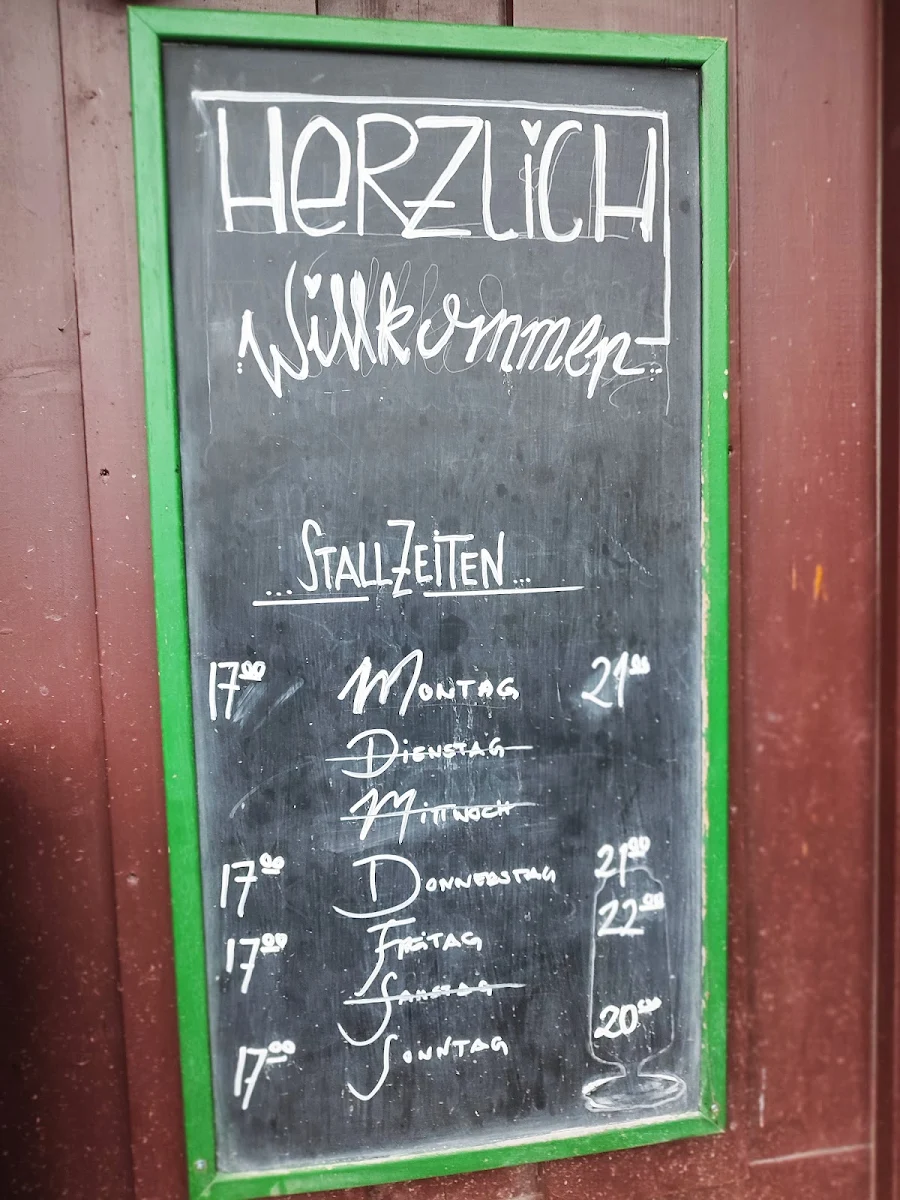 HeRZLiCH
Willkommen
...STALLZEITEN...
17⁰⁰ MONTAG 21⁰⁰
DIENSTAG
MITTWOCH
17⁰⁰ DONNERSTAG 21⁰⁰
17⁰⁰ FREITAG 22⁰⁰
SAMSTAG
17⁰⁰ SONNTAG 20⁰⁰